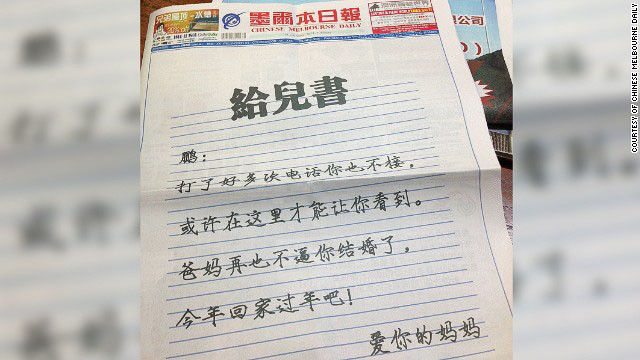 墨爾本日報
CHINESE MELBOURNE DAILY
公司
給兒書
鹏：
打了好多次电话你也不接，
或许在这里才能让你看到。
爸妈再也不逼你结婚了，
今年回家过年吧！
爱你的妈妈
COURTESY OF CHINESE MELBOURNE DAILY